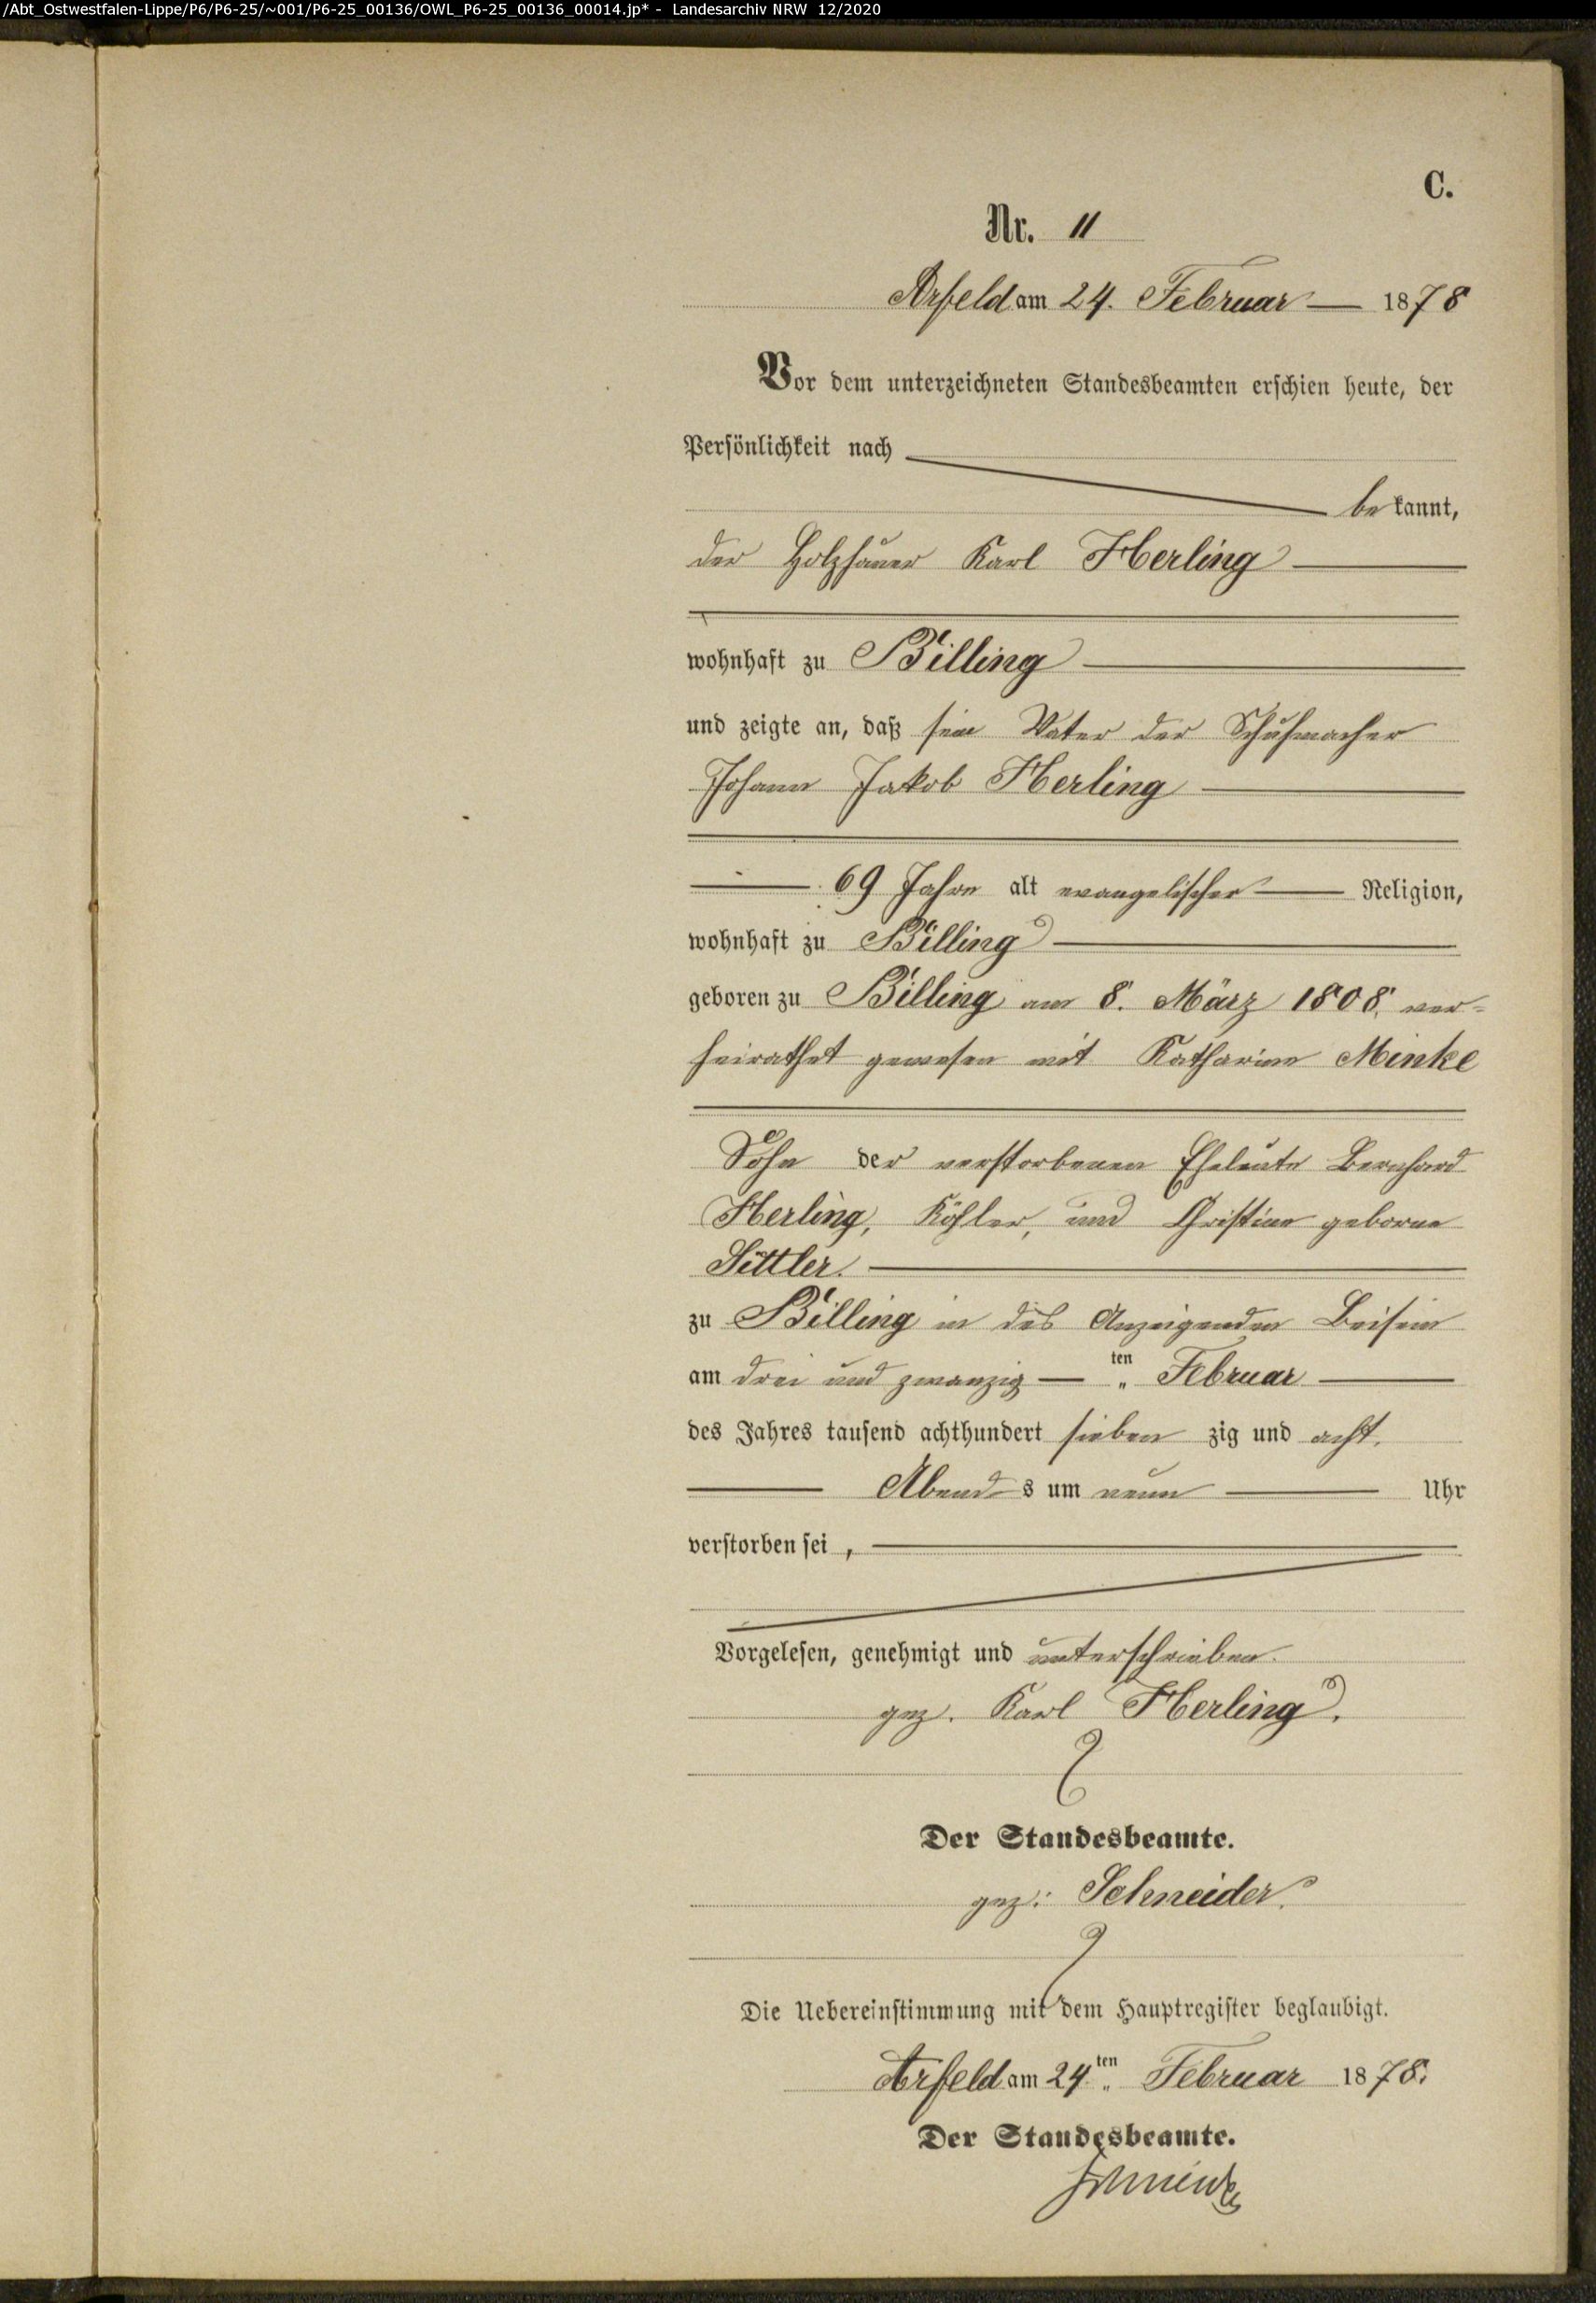 /Abt_Ostwestfalen-Lippe/P6/P6-25/~001/P6-25_00136/OWL_P6-25_00136_00014.jp* - Landesarchiv NRW 12/2020
C.
Nr. 11
Arfeld am 24. Februar 1878
Vor dem unterzeichneten Standesbeamten erschien heute, der
Persönlichkeit nach
be kannt,
der Holzhauer Karl Herling
wohnhaft zu Billing
und zeigte an, daß sein Vater der Schuhmacher
Johann Jakob Herling
69 Jahre alt evangelischer Religion,
wohnhaft zu Billing
geboren zu Billing am 8. März 1808. ver-
heirathet gewesen mit Katharine Minke
Sohn der verstorbenen Eheleute Bernhard
Herling, Köhler, und Christine geborne
Sittler.
zu Billing in des Anzeigenden Beisein
am drei und zwanzig ten Februar
des Jahres tausend achthundert sieben zig und acht.
Abend s um neun Uhr
verstorben sei ,
Vorgelesen, genehmigt und unterschrieben.
gez. Karl Herling.
Der Standesbeamte.
gez: Schneider.
Die Uebereinstimmung mit dem Hauptregister beglaubigt.
Arfeld am 24ten Februar 1878.
Der Standesbeamte.
Schneider